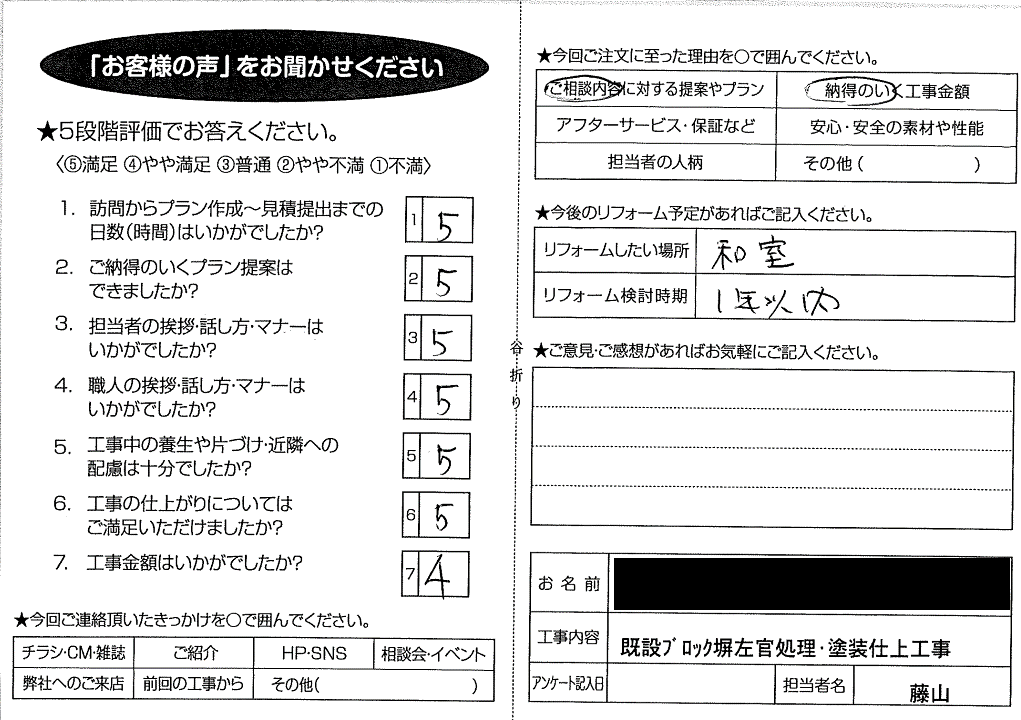 「お客様の声」をお聞かせください
★5段階評価でお答えください。
〈⑤満足 ④やや満足 ③普通 ②やや不満 ①不満〉
1. 訪問からプラン作成～見積提出までの
日数(時間)はいかがでしたか?
1 5
2. ご納得のいくプラン提案は
できましたか?
2 5
3. 担当者の挨拶・話し方・マナーは
いかがでしたか?
3 5
4. 職人の挨拶・話し方・マナーは
いかがでしたか?
4 5
5. 工事中の養生や片づけ・近隣への
配慮は十分でしたか?
5 5
6. 工事の仕上がりについては
ご満足いただけましたか?
6 5
7. 工事金額はいかがでしたか?
7 4
★今回ご連絡頂いたきっかけを○で囲んでください。
チラシ・CM・雑誌 ご紹介 HP・SNS 相談会・イベント
弊社へのご来店 前回の工事から その他( )
谷折り
★今回ご注文に至った理由を○で囲んでください。
ご相談内容に対する提案やプラン 納得のいく工事金額
アフターサービス・保証など 安心・安全の素材や性能
担当者の人柄 その他( )
★今後のリフォーム予定があればご記入ください。
リフォームしたい場所 和室
リフォーム検討時期 1年以内
★ご意見・ご感想があればお気軽にご記入ください。
お名前
工事内容 既設ブロック塀左官処理・塗装仕上工事
アンケート記入日 担当者名 藤山